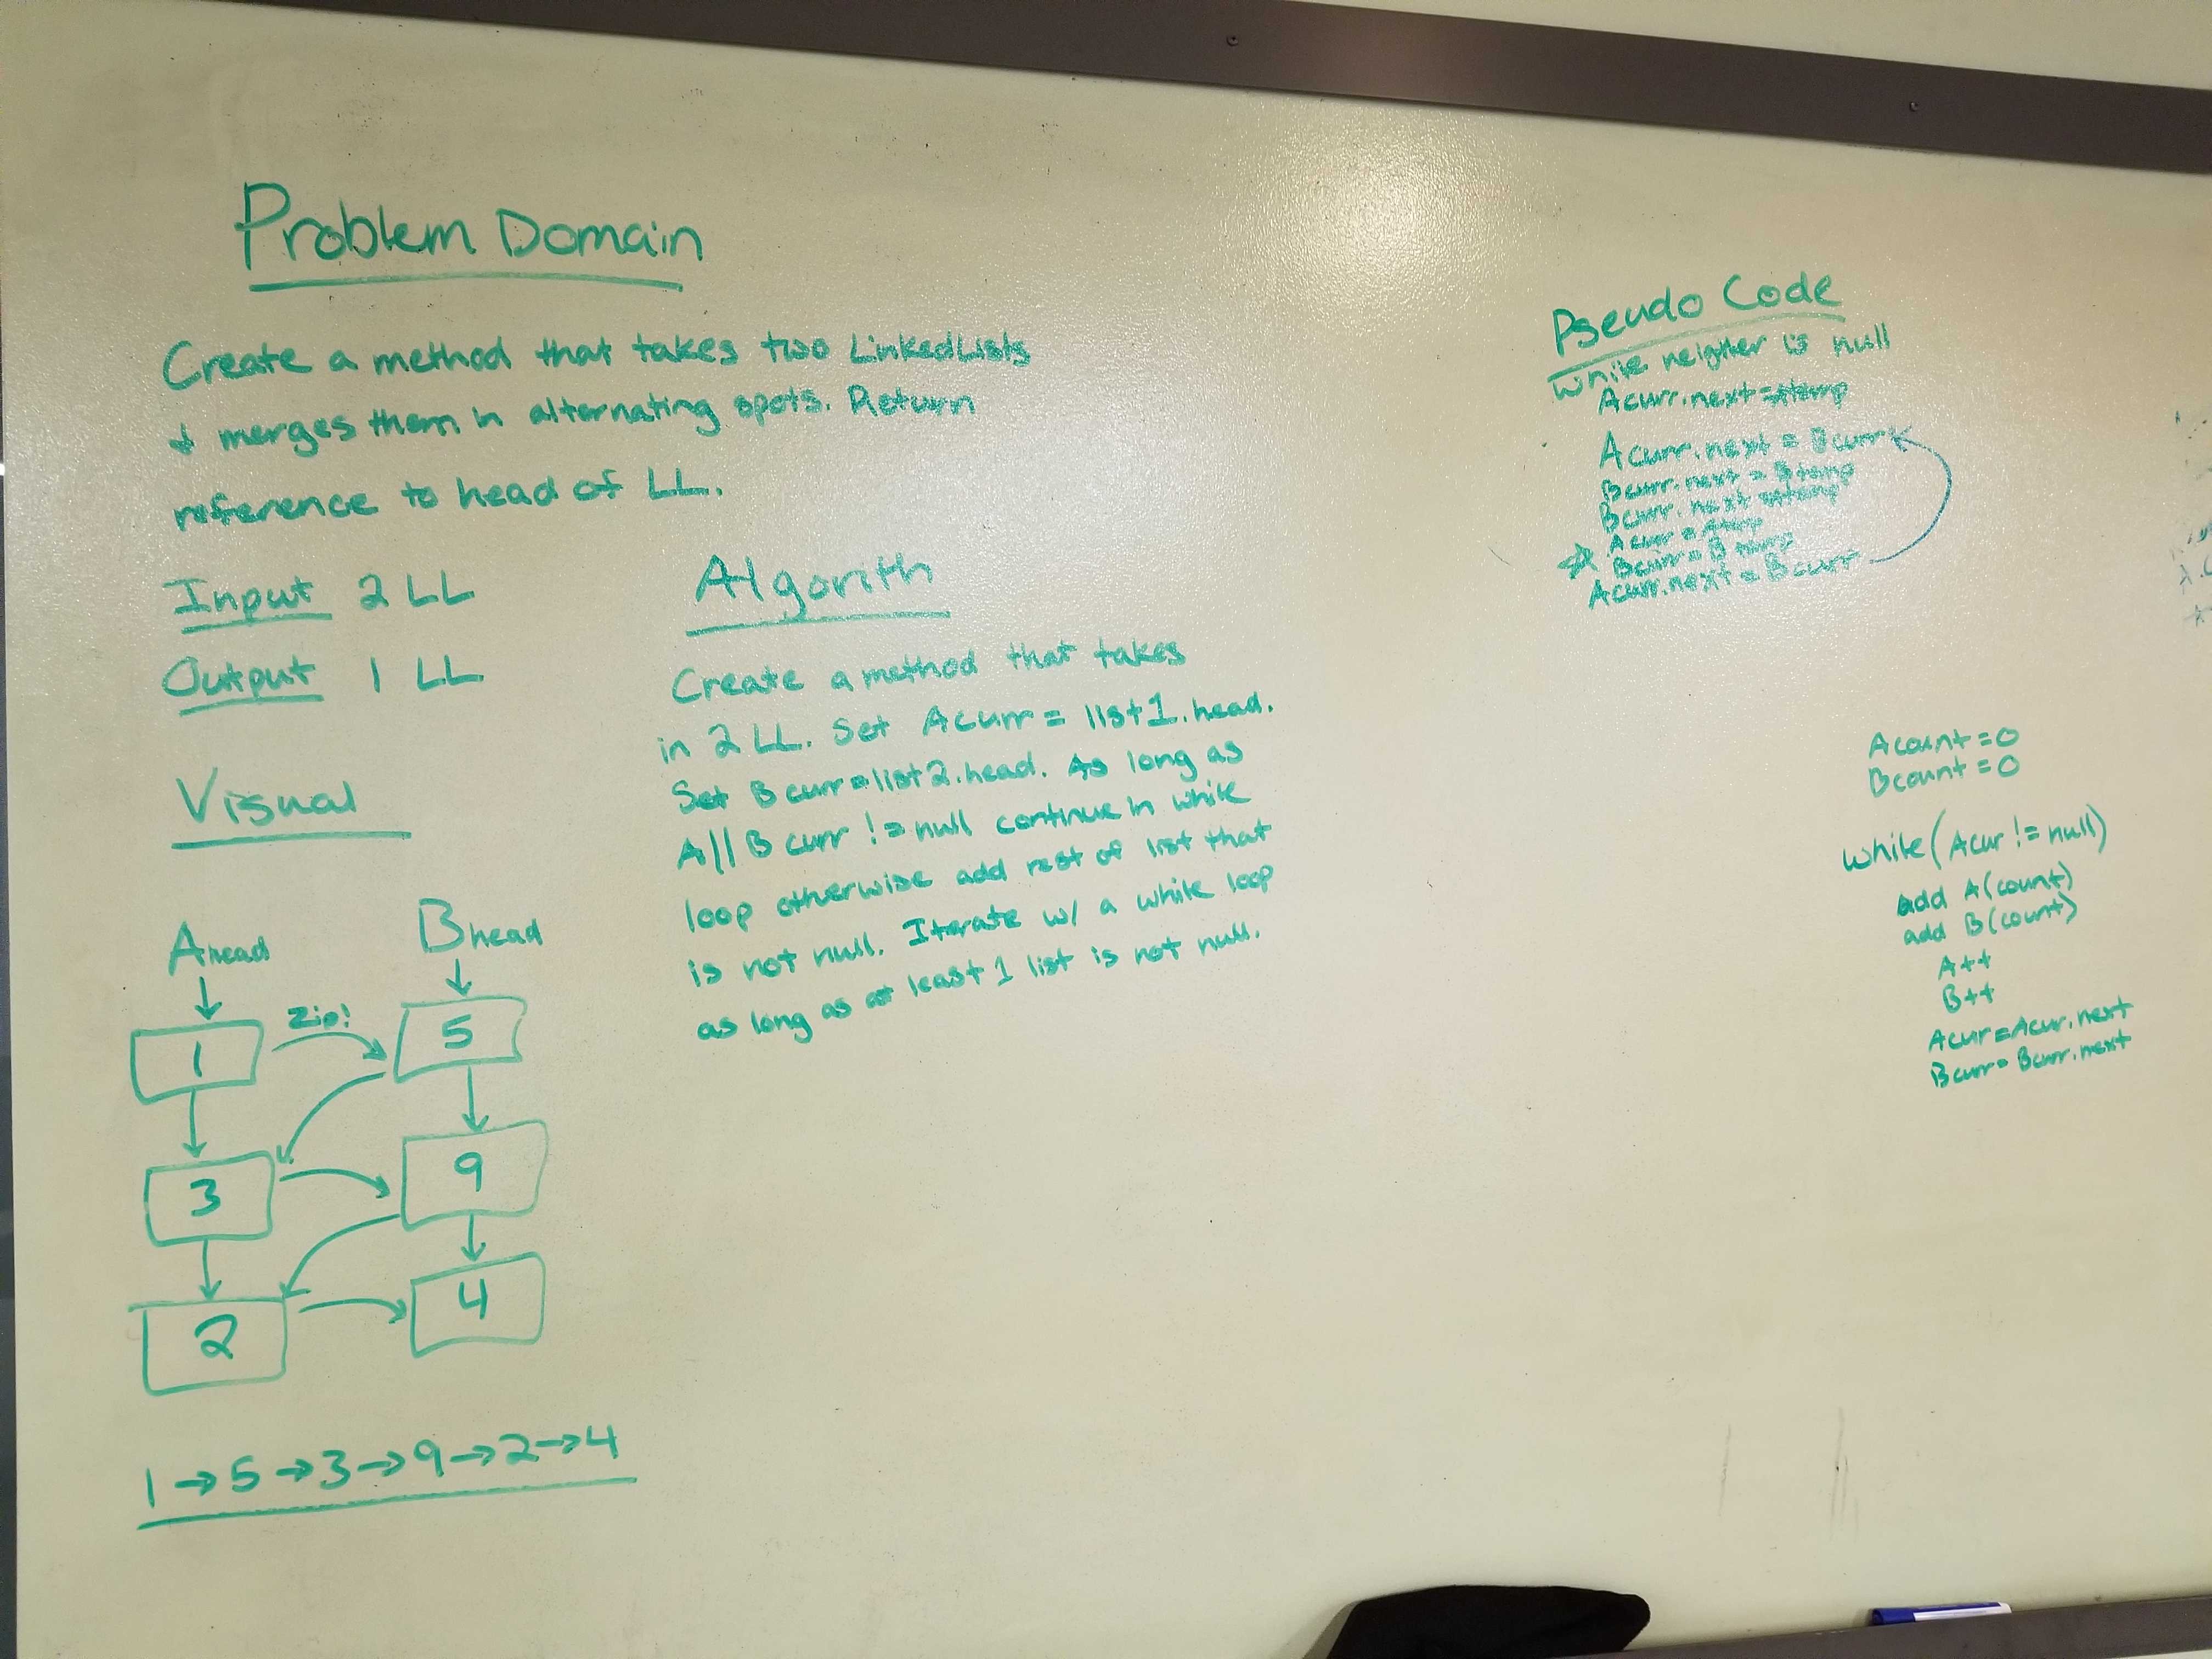 Problem Domain
Create a method that takes two LinkedLists
+ merges them in alternating spots. Return
reference to head of LL.
Input 2 LL
Output 1 LL
Visual
Ahead
Bhead
Zip!
1
5
3
9
2
4
1→5→3→9→2→4
Algorith
Create a method that takes
in 2 LL. Set Acurr = list1.head.
Set Bcurr=list2.head. As long as
A||B curr != null continue in while
loop otherwise add rest of list that
is not null. Iterate w/ a while loop
as long as at least 1 list is not null.
Pseudo Code
While neigther is null
Acurr.next=Atemp
Acurr.next = Bcurr
Bcurr.next = Btemp
Bcurr.next =Atemp
Acurr=Atemp
Bcurr=Btemp
Acurr.next=Bcurr
Acount=0
Bcount=0
while(Acur != null)
add A(count)
add B(count)
A++
B++
Acur=Acur.next
Bcurr=Bcurr.next